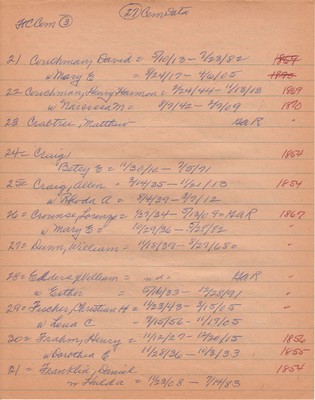 (27) Cem Data
FC Cem (3)
21 Couchman, David = 5/10/13 - 2/23/82 1857
w Mary E = 8/24/17 - 4/6/05 1890
22 - Couchman, Henry Harmon = 2/24/44 - 1/13/13 1869
w Narcissa M = 8/7/42 - 2/7/09 1870
23 Crabtree, Matthew GAR "
24 = Craig, 1854
Betsy E = 11/30/10 - 7/5/71
25 = Craig, Allen - 3/14/35 - 1/21/13 1854
w Rhoda A = 8/4/39 - 3/7/12
26 = Crounse, Lorenzo = 1/27/34 - 7/13/09 = GAR 1867
w Mary E = 10/29/36 - 3/25/82 "
27 = Dunn, William = 11/18/39 - 8/27/65 = "
28 = William = n.d. = GAR "
w Esther = 5/16/33 - 12/28/91 "
29 = Fischer, Christian H = 11/23/43 - 3/15/05 "
w Lena C - 7/15/56 - 11/17/65
30 = Frahm, Henry = 11/12/27 - 10/20/15 1856
w Dorothea E = 11/28/36 - 11/3/33 1855
31 = Franklin, Daniel 1854
w Hulda = 1/23/08 - 7/14/83